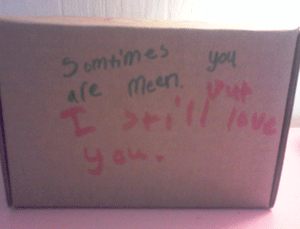 Somtimes you
are meen. but
I still love
you.